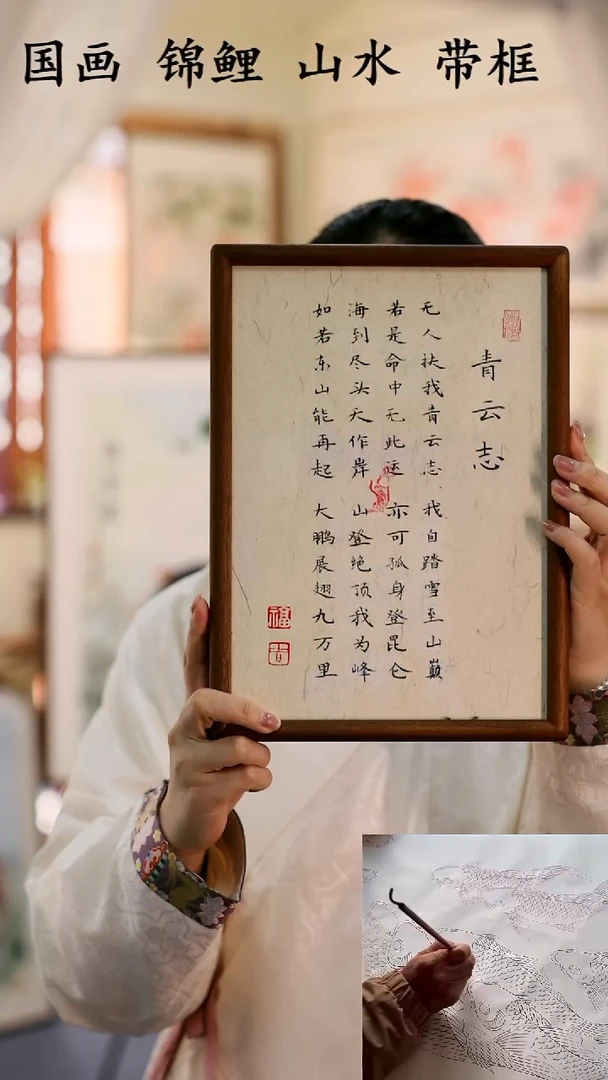 国画 锦鲤 山水 带框
青云志
无人扶我青云志 我自踏雪至山巅
若是命中无此运 亦可孤身登昆仑
海到尽头天作岸 山登绝顶我为峰
如若东山能再起 大鹏展翅九万里
福
吉